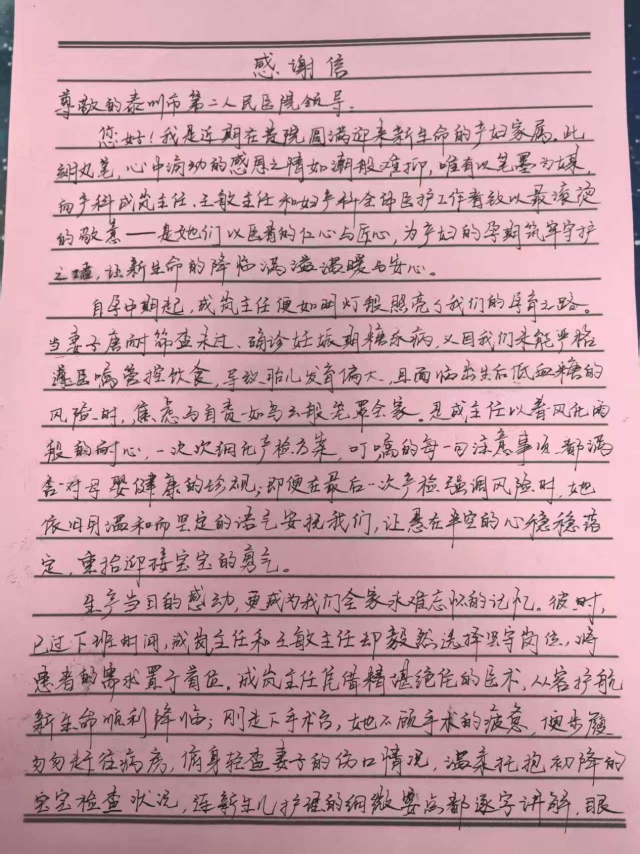 感谢信
尊敬的泰州市第二人民医院领导：
您好！我是近期在贵院圆满迎来新生命的产妇家属。此
刻执笔，心中涌动的感恩之情如潮般难抑，唯有以笔墨为媒，
向产科成岗主任、王敏主任和妇产科全体医护工作者致以最滚烫
的敬意——是她们以医者的仁心与匠心，为产妇的孕期筑牢守护
之墙，让新生命的降临满溢温暖与安心。
自孕中期起，成岗主任便如明灯般照亮了我们的孕育之路。
当妻子唐耐筛查未过、确诊妊娠期糖尿病，又因我们未能严格
遵医嘱管控饮食，导致胎儿发育偏大，且面临出生后低血糖的
风险时，焦虑与自责如乌云般笼罩全家。是成主任以春风化雨
般的耐心，一次次细化产检方案，叮嘱的每一句注意事项都满
含对母婴健康的珍视；即便在最后一次产检强调风险时，她
依旧用温和而坚定的语气安抚我们，让悬在半空的心稳稳落
定，重拾迎接宝宝的勇气。
生产当日的感动，更成为我们全家永难忘怀的记忆。彼时，
已过下班时间，成岗主任和王敏主任却毅然选择坚守岗位，将
患者的需求置于首位。成岗主任凭借精湛绝伦的医术，从容护航
新生命顺利降临；刚走下手术台，她不顾手术的疲惫，便步履
匆匆赶往病房，俯身轻查妻子的伤口情况，温柔托抱初降的
宝宝检查状况，连新生儿护理的细微要点都逐字讲解，眼